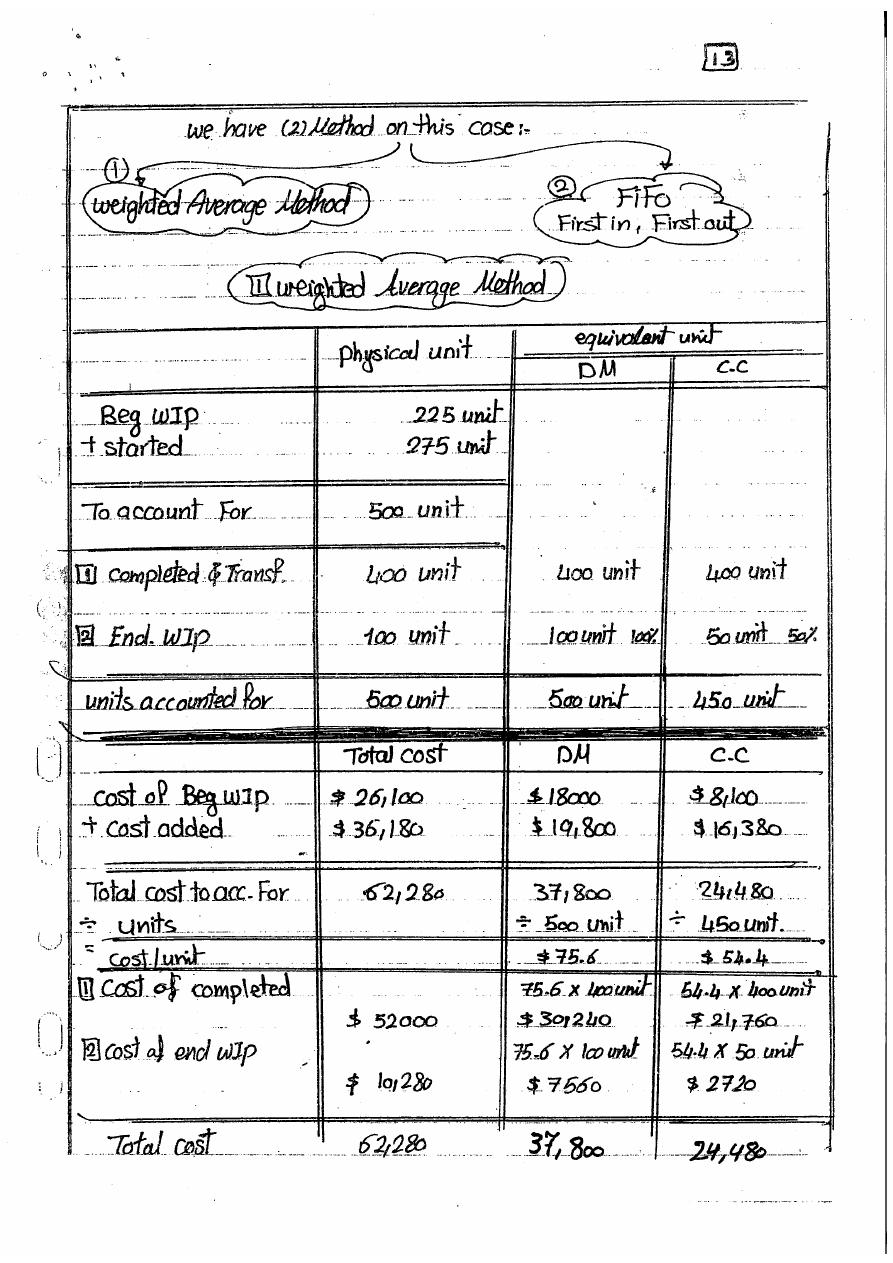 13
we have (2) Method on this case:-
① ②
weighted Average Method FiFo
First in, First out
1 weighted Average Method
physical unit equivalent unit
DM C.C
Beg WIP 225 unit
+ started 275 unit
To account For 500 unit
1 Completed & Transf. 400 unit 400 unit 400 unit
2 End. WIP 100 unit 100 unit 100% 50 unit 50%
units accounted for 500 unit 500 unit 450 unit
Total cost DM C.C
cost of Beg WIP $ 26,100 $ 18000 $ 8,100
+ Cost added $ 36,180 $ 19,800 $ 16,380
Total cost to acc. For 62,280 37,800 24,480
÷ units ÷ 500 unit ÷ 450 unit.
= cost/unit $ 75.6 $ 54.4
1 Cost of completed 75.6 X 400 unit 54.4 X 400 unit
$ 52000 $ 30,240 $ 21,760
2 cost of end WIP 75.6 X 100 unit 54.4 X 50 unit
$ 10,280 $ 7560 $ 2720
Total cost 62,280 37,800 24,480